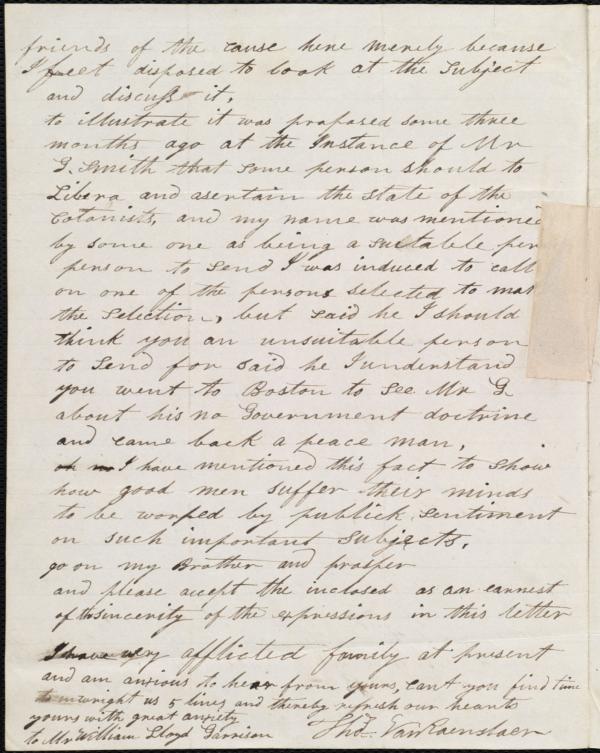 friends of the cause here merely because
I feel disposed to look at the subject
and discuss it,
to illustrate it was proposed some three
months ago at the Instance of Mr
G. Smith that some person should to
Libera and asertain the state of the
Colonists, and my name was mentioned
by some one as being a suitable per
person to send I was induced to call
on one of the persons selected to mak
the selection, but said he I should
think you an unsuitable person
to send for said he I understand
you went to Boston to see Mr G.
about his no Government doctrine
and came back a peace man,
I have mentioned this fact to show
how good men suffer their minds
to be worped by publick sentiment
on such important subjects.
go on my Brother and prosper
and please accept the inclosed as an earnest
of the sincerity of the expressions in this letter
I have very afflicted family at present
and am anxious to hear from yours, cant you find time
to wright us 5 lines and thereby refresh our hearts
yours with great anxiety
to Mr William Lloyd Garrison Thos. VanRaenslaer